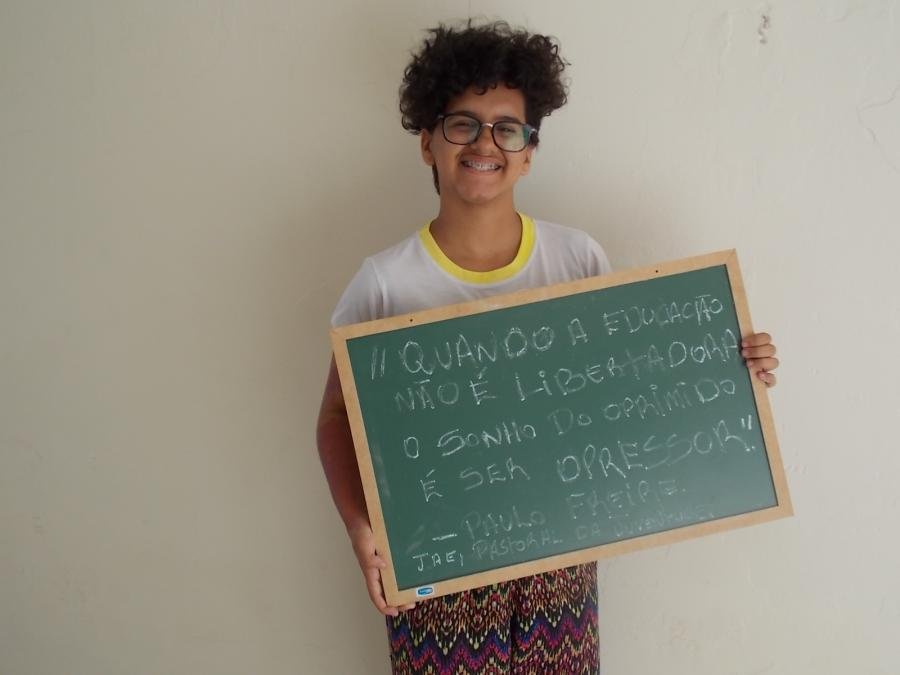 "QUANDO A EDUCAÇÃO
NÃO É LIBERTADORA
O SONHO DO OPRIMIDO
É SER OPRESSOR".
_ PAULO FREIRE.
JAE, PASTORAL DA JUVENTUDE.